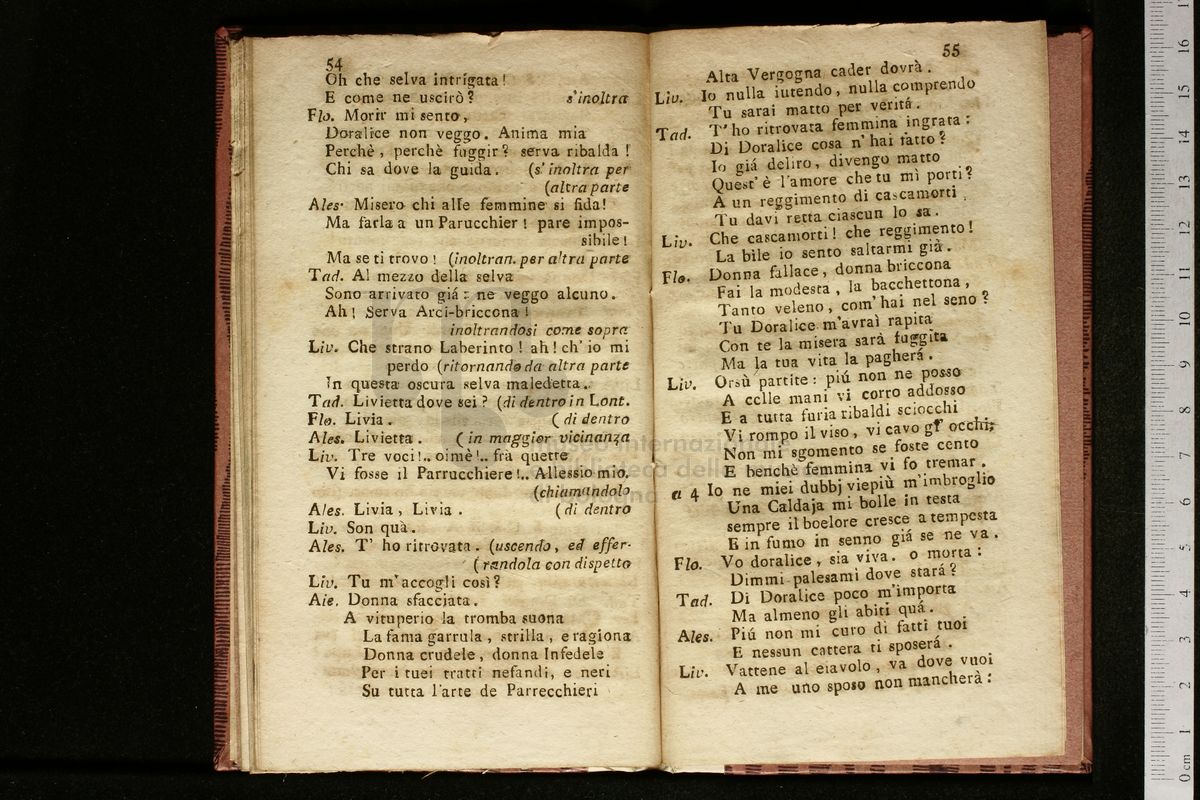 54
Oh che selva intrigata!
E come ne uscirò? s'inoltra
Flo. Morir mi sento,
Doralice non veggo. Anima mia
Perchè, perchè fuggir? serva ribalda!
Chi sa dove la guida. (s'inoltra per
(altra parte
Ales. Misero chi alle femmine si fida!
Ma farla a un Parucchier! pare impos-
sibile!
Ma se ti trovo! (inoltran. per altra parte
Tad. Al mezzo della selva
Sono arrivato giá: ne veggo alcuno.
Ah! Serva Arci-briccona!
inoltrandosi come sopra
Liv. Che strano Laberinto! ah! ch' io mi
perdo (ritornando da altra parte
In questa oscura selva maledetta..
Tad. Livietta dove sei? (di dentro in Lont.
Flo. Livia. (di dentro
Ales. Livietta. (in maggior vicinanza
Liv. Tre voci!.. oimè!.. frà quette
Vi fosse il Parrucchiere!.. Allessio mio.
(chiamandolo
Ales. Livia, Livia. (di dentro
Liv. Son quà.
Ales. T' ho ritrovata. (uscendo, ed effer-
(randola con dispetto
Liv. Tu m'accogli così?
Aie. Donna sfacciata.
A vituperio la tromba suona
La fama garrula, strilla, e ragiona
Donna crudele, donna Infedele
Per i tuei tratti nefandi, e neri
Su tutta l'arte de Parrecchieri
55
Alta Vergogna cader dovrà.
Liv. Io nulla iutendo, nulla comprendo
Tu sarai matto per veritá.
Tad. T'ho ritrovata femmina ingrata:
Di Doralice cosa n'hai fatto?
Io giá deliro, divengo matto
Quest' è l'amore che tu mì porti?
A un reggimento di cascamorti
Tu davi retta ciascun lo sa.
Liv. Che cascamorti! che reggimento!
La bìle io sento saltarmi già.
Flo. Donna fallace, donna briccona
Fai la modesta, la bacchettona,
Tanto veleno, com'hai nel seno?
Tu Doralice m'avraì rapita
Con te la misera sarà fuggita
Ma la tua vita la pagherá.
Liv. Orsù partite: piú non ne posso
A celle mani vi corro addosso
E a tutta furia ribaldi sciocchi
Vi rompo il viso, vi cavo gl' occhi;
Non mi sgomento se foste cento
E benchè femmina vi fo tremar.
a 4 Io ne miei dubbj viepiù m'imbroglio
Una Caldaja mi bolle in testa
sempre il boelore cresce a tempesta
E in fumo in senno giá se ne va.
Flo. Vo doralice, sia viva. o morta:
Dimmi palesami dove stará?
Tad. Di Doralice poco m'importa
Ma almeno gli abiti quá.
Ales. Piú non mi curo di fatti tuoi
E nessun cattera ti sposerá.
Liv. Vattene al eiavolo, va dove vuoi
A me uno sposo non mancherà: